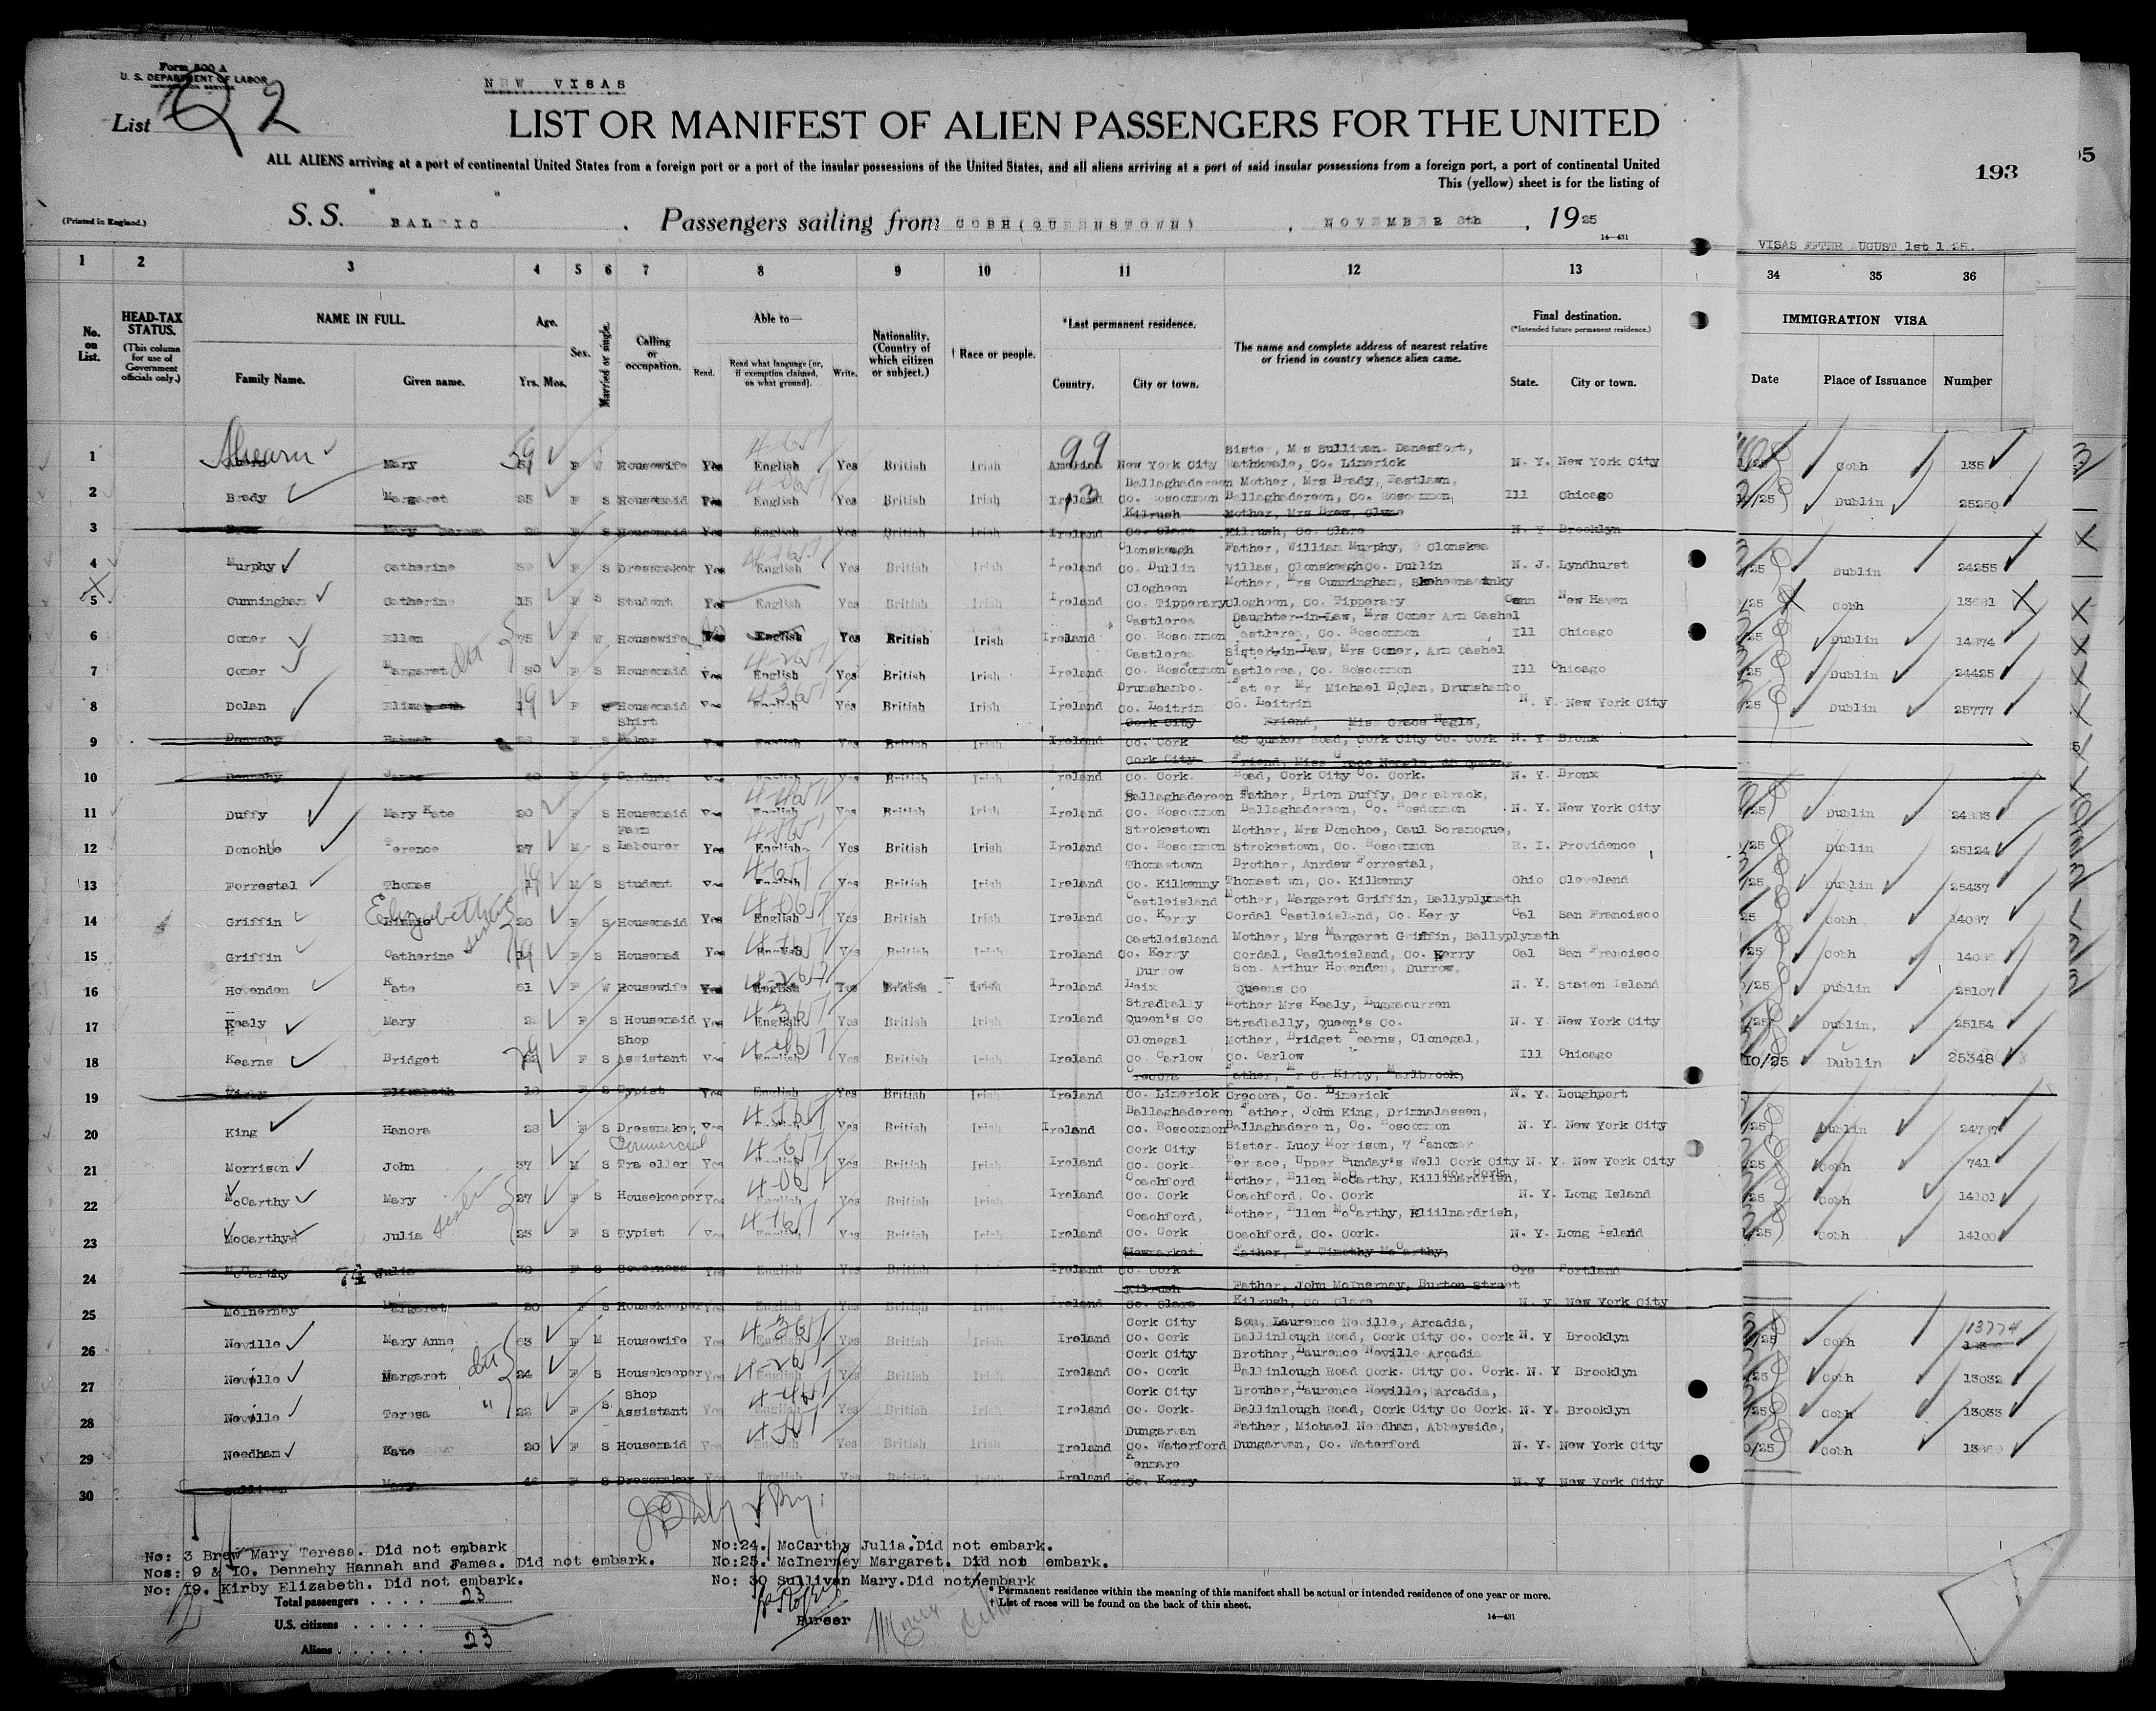 Form 500 A
U. S. DEPARTMENT OF LABOR
IMMIGRATION SERVICE
List 2
NEW VISAS
LIST OR MANIFEST OF ALIEN PASSENGERS FOR THE UNITED
ALL ALIENS arriving at a port of continental United States from a foreign port or a port of the insular possessions of the United States, and all aliens arriving at a port of said insular possessions from a foreign port, a port of continental United
This (yellow) sheet is for the listing of
193
95
(Printed in England.)
S. S. "BALTIC", Passengers sailing from COBH (QUEENSTOWN), NOVEMBER 8th, 1925
14-431
VISAS AFTER AUGUST 1st 1925.
1 2 3 4 5 6 7 8 9 10 11 12 13 34 35 36
No. on List.
HEAD-TAX STATUS. (This column for use of Government officials only.)
NAME IN FULL. Family Name. Given name.
Age. Yrs. Mos.
Sex.
Married or single.
Calling or occupation.
Able to— Read. Read what language (or, if exemption claimed, on what ground). Write.
Nationality. (Country of which citizen or subject.)
† Race or people.
*Last permanent residence. Country. City or town.
The name and complete address of nearest relative or friend in country whence alien came.
Final destination. (*Intended future permanent residence.) State. City or town.
IMMIGRATION VISA
Date Place of Issuance Number
1 Ahearn Mary 59 F W Housewife Yes English Yes British Irish America 99 New York City Sister, Mrs Sullivan. Danesfort, Rathkeale, Co. Limerick N. Y. New York City /25 Cobh 135
2 Brady Margaret 25 F S Housemaid Yes English Yes British Irish Ireland Ballaghadereen Co. Roscommon Mother, Mrs Brady, Eastlawn, Ballaghadereen, Co. Roscommon Ill Chicago /25 Dublin 25250
3 Brew Mary Teresa F S Housemaid Yes English Yes British Irish Ireland Kilrush Co. Clare Mother, Mrs Brew, Kilrush, Co. Clare N. Y Brooklyn
4 Murphy Catherine F S Dressmaker Yes English Yes British Irish Ireland Clonskeagh Co. Dublin Father, William Murphy, Clonskea Villas, Clonskeagh Co. Dublin N. J. Lyndhurst /25 Dublin 24255
5 Cunningham Catherine 15 F S Student Yes English Yes British Irish Ireland Clogheen Co. Tipperary Mother, Mrs Cunningham, Clogheen, Co. Tipperary Conn New Haven /25 Cobh 13681
6 Comer Ellen 75 F W Housewife Yes English Yes British Irish Ireland Castlerea Co. Roscommon Daughter-in-Law, Mrs Comer Arm Cashel Castlerea, Co. Roscommon Ill Chicago /25 Dublin 14874
7 Comer Margaret 30 F S Housemaid Yes English Yes British Irish Ireland Castlerea Co. Roscommon Sister-in-Law, Mrs Comer, Arm Cashel Castlerea, Co. Roscommon Ill Chicago /25 Dublin 24425
8 Dolan Eliza 19 F S Housemaid Yes English Yes British Irish Ireland Drumshambo. Co. Leitrim Father Mr Michael Dolan, Drumshambo Co. Leitrim N. Y. New York City /25 Dublin 25777
9 Dennehy Hannah F S Shirt Maker Yes English Yes British Irish Ireland Cork City Co. Cork Friend, Miss Grace Nagle, 65 Quaker Road, Cork City Co. Cork N. Y. Bronx
10 Dennehy James 40 M S Gardner Yes English Yes British Irish Ireland Cork City Co. Cork. Friend, Miss Grace Neagle, 65 Quaker Road, Cork City Co. Cork. N. Y. Bronx
11 Duffy Mary Kate 20 F S Housemaid Yes English Yes British Irish Ireland Ballaghadereen Co. Roscommon Father, Brien Duffy, Derrabrack, Ballaghadereen, Co. Roscommon N. Y. New York City /25 Dublin 24883
12 Donohoe Terence 27 M S Farm Labourer Yes English Yes British Irish Ireland Strokestown Co. Roscommon Mother, Mrs Donohoe, Caul Scramogue, Strokestown, Co. Roscommon R. I. Providence /25 Dublin 25124
13 Forrestal Thomas 19 M S Student Yes English Yes British Irish Ireland Thomastown Co. Kilkenny Brother, Anrdew Forrestal, Thomast wn, Co. Kilkenny Ohio Cleveland /25 Dublin 25437
14 Griffin Lizzie Elizabeth sister 20 F S Housemaid Yes English Yes British Irish Ireland Castleisland Co. Kerry Mother, Margaret Griffin, Ballyplymath Cordal Castleisland, Co. Kerry Cal San Francisco 25 Cobh 14087
15 Griffin Catherine 19 F S Housemad Yes English Yes British Irish Ireland Castleisland Co. Kerry Mother, Mrs Margaret Griffin, Ballyplymath Cordal, Caslteisland, Co. Kerry Cal San Francisco /25 Cobh
16 Hovenden Kate 61 F W Housewife Yes English Yes British Irish Ireland Durrow Leix Son. Arthur Hovenden, Durrow, Queens Co N. Y. Staten Island /25 Dublin 25107
17 Kealy Mary F S Housemaid Yes English Yes British Irish Ireland Stradbally Queen's Co Mother Mrs Kealy, Luggacurren Stradbally, Queen's Co. N. Y. New York City /25 Dublin, 25154
18 Kearns Bridget 29 F S Shop Assistant Yes English Yes British Irish Ireland Clonegal Co. Carlow Mother, Bridget Kearns, Clonegal, Co. Carlow Ill Chicago 10/25 Dublin 25348
19 Kirby Elizabeth F S Typist Yes English Yes British Irish Ireland Crecora Co. Limerick Father, Mr C. Kirby, Marlbrook, Crecora, Co. Limerick N. Y. Loughport
20 King Hanora 28 F S Dressmaker Yes English Yes British Irish Ireland Ballaghadereen Co. Roscommon Father, John King, Drimnalassen, Ballaghadereen, Co. Roscommon N. Y. New York City /25 Dublin 24787
21 Morrison John 37 M S Commercial Traveller Yes English Yes British Irish Ireland Cork City Co. Cork. Sister. Lucy Morrison, 7 Panorama Terrace, Upper Sunday's Well Cork City N. Y. New York City /25 Cobh 741
22 McCarthy Mary sister 27 F S Housekeeper Yes English Yes British Irish Ireland Coachford Co. Cork Mother, Ellen McCarthy, Killinardrish, Co. Cork Coachford, Co. Cork N. Y. Long Island 25 Cobh 14101
23 McCarthy Julia 23 F S Typist Yes English Yes British Irish Ireland Coachford, Co. Cork Mother, Ellen McCarthy, Kliilnardrish, Coachford, Co. Cork. N. Y. Long Island /25 Cobh 14100
24 McCarthy Julia 30 F S Governess Yes English Yes British Irish Ireland Newmarket Co. Cork Father, Mr Timothy McCarthy, Ore Portland
25 McInerney Margaret 20 F S Housekeeper Yes English Yes British Irish Ireland Kilrush Co. Clare Father, John McInerney, Burton Street Kilrush, Co. Clare N. Y. New York City
26 Neville Mary Anne 63 F M Housewife Yes English Yes British Irish Ireland Cork City Co. Cork Son, Laurence Neville, Arcadia, Ballinlough Road, Cork City Co. Cork N. Y Brooklyn /25 Cobh 13774
27 Neville Margaret 24 F S Housekeeper Yes English Yes British Irish Ireland Cork City Co. Cork Brother, Laurence Neville Arcadia Ballinlough Road Cork. City Co. Cork. N. Y Brooklyn /25 Cobh 13032
28 Neville Teresa " 22 F S Shop Assistant Yes English Yes British Irish Ireland Cork City Co. Cork. Brother, Laurence Neville, Arcadia, Ballinlough Road, Cork City Co Cork. N. Y. Brooklyn /25 Cobh 13033
29 Needham Kate 20 F S Housemaid Yes English Yes British Irish Ireland Dungarvan Co. Waterford Father, Michael Needham, Abbeyside, Dungarvan, Co. Waterford N. Y. New York City /25 Cobh
30 Sullivan Mary F S Dressmaker Yes English Yes British Irish Ireland Kenmare Co. Kerry N. Y New York City
No: 3 Brew Mary Teresa. Did not embark
Nos: 9 & 10. Dennehy Hannah and James. Did not embark.
No: 19. Kirby Elizabeth. Did not embark.
No:24. McCarthy Julia.Did not embark.
No:25. McInerney Margaret. Did not embark.
No: 30 Sullivan Mary.Did not embark
Purser
Total passengers . . . . 23
U.S. citizens . . . . .
Aliens . . . . . . 23
* Permanent residence within the meaning of this manifest shall be actual or intended residence of one year or more.
† List of races will be found on the back of this sheet.
14-431